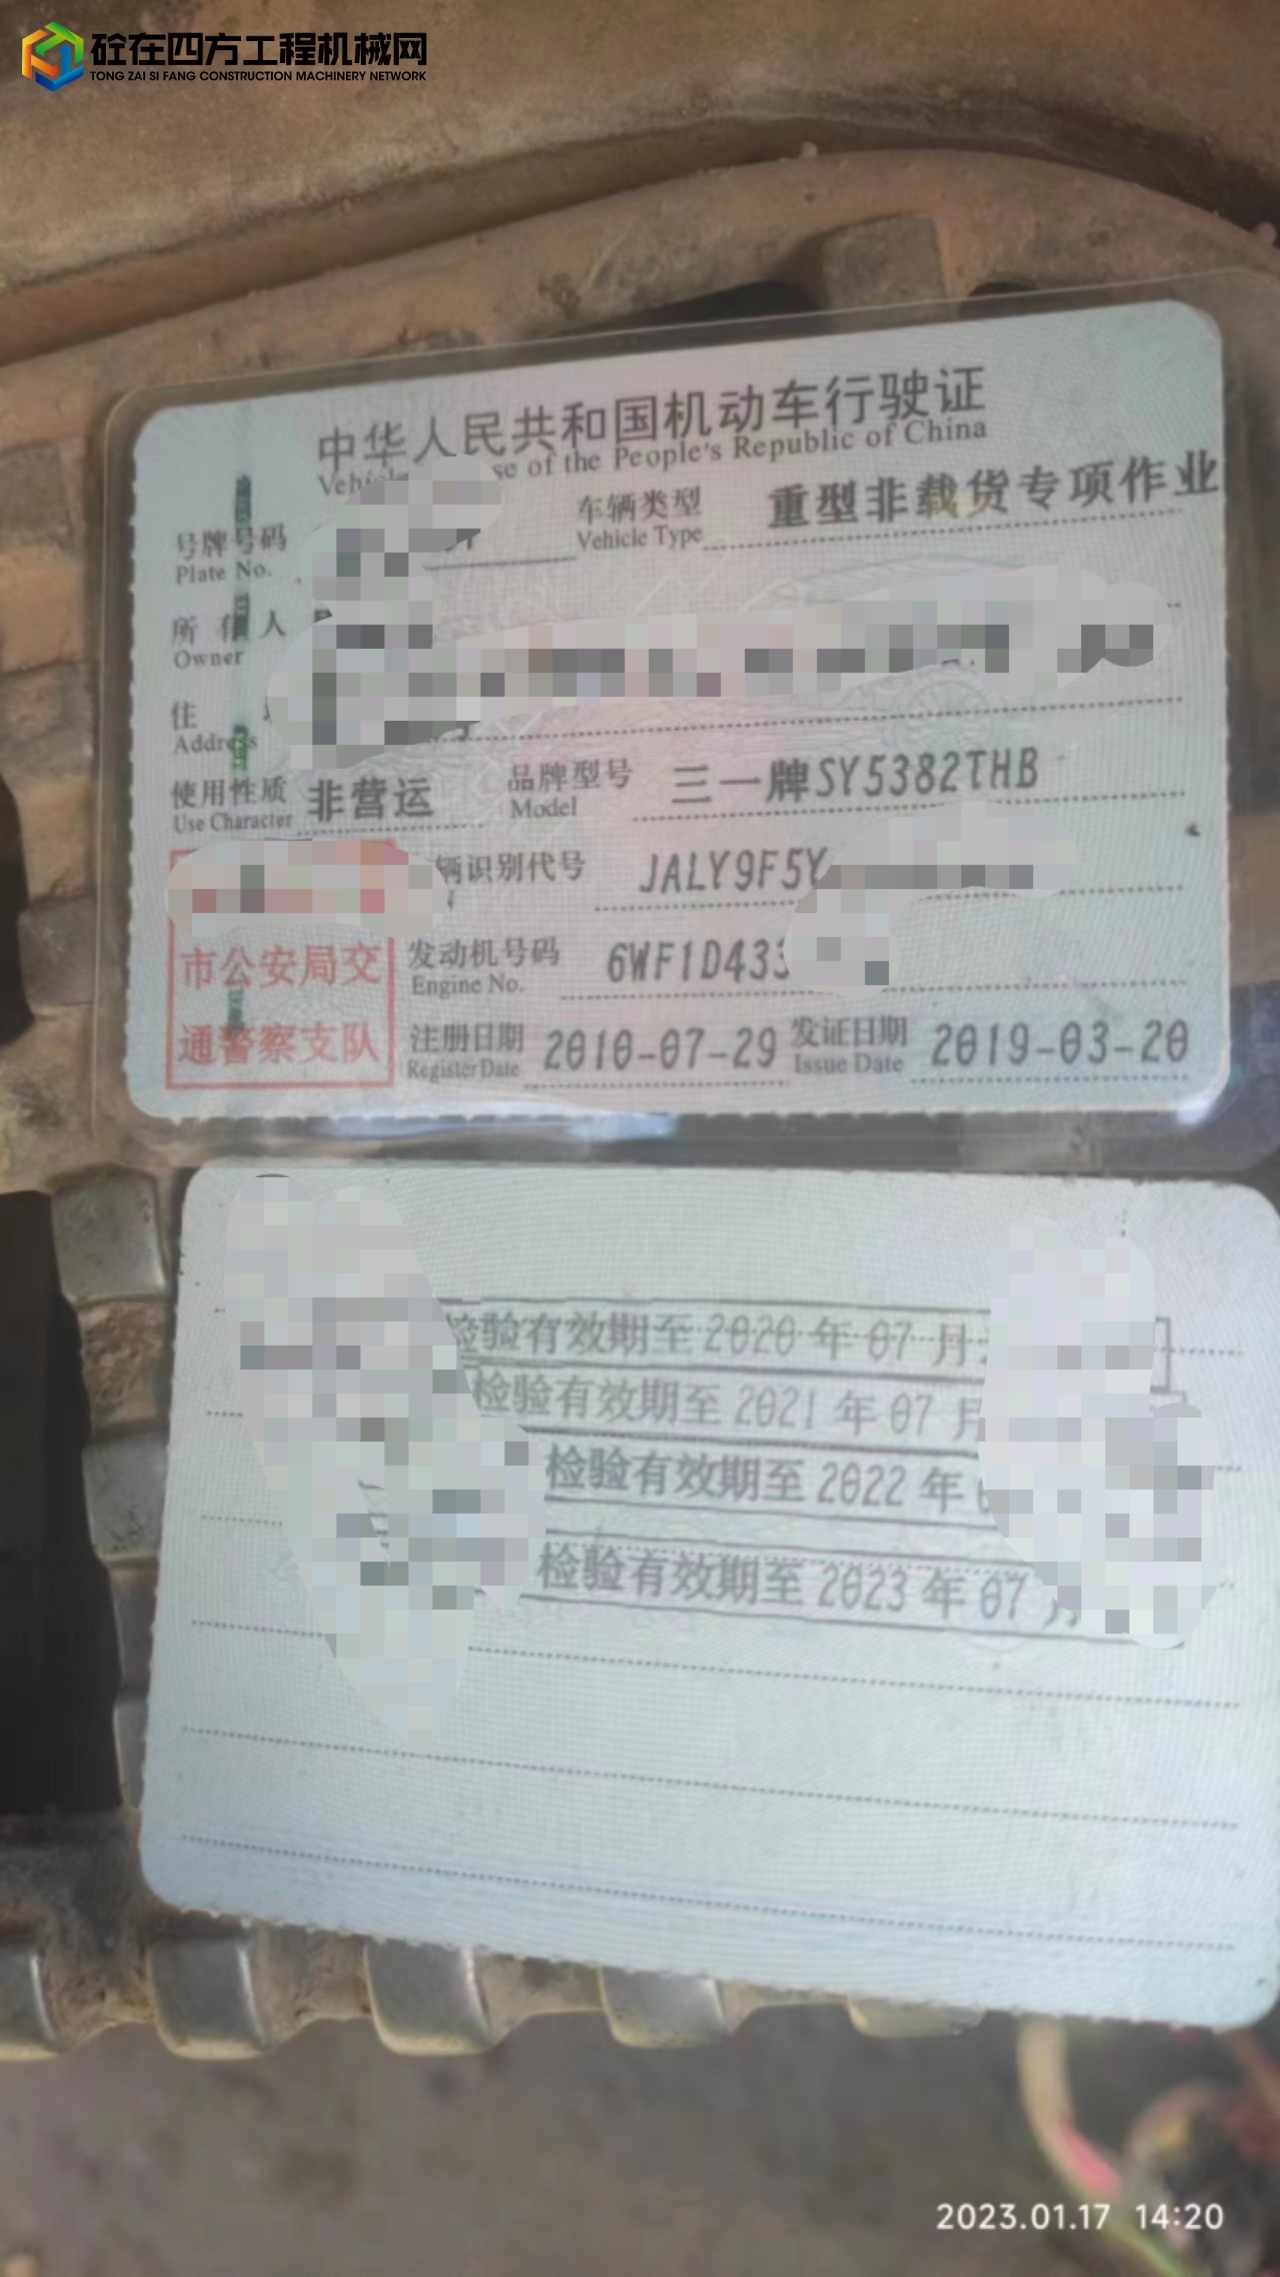 砼在四方工程机械网
TONG ZAI SI FANG CONSTRUCTION MACHINERY NETWORK
中华人民共和国机动车行驶证
se of the People's Republic of China
号牌号码
Plate No.
车辆类型
Vehicle Type
重型非载货专项作业
所有人
Owner
住
Address
使用性质
Use Character
非营运
品牌型号
Model
三一牌SY5382THB
辆识别代号
JALY9F5Y
市公安局交
通警察支队
发动机号码
Engine No.
6WF1D433
注册日期
Register Date
2010-07-29
发证日期
Issue Date
2019-03-20
检验有效期至 2020 年 07 月
检验有效期至 2021 年 07 月
检验有效期至 2022 年
检验有效期至 2023 年 07 月
2023.01.17 14:20